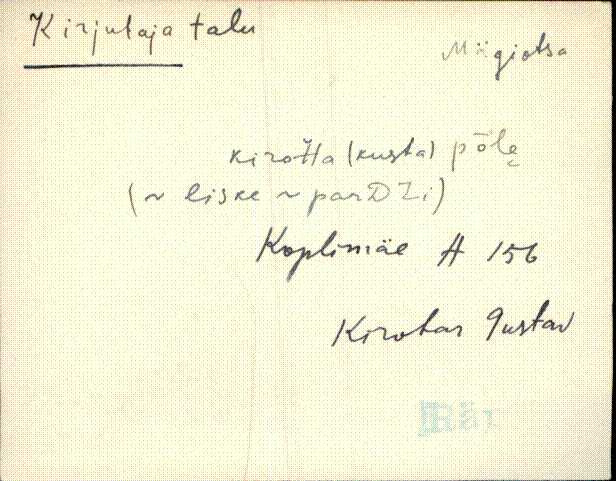 Kirjutaja talu
Mägiotsa
kirotta (kusta) põlę
(~ liske ~ parDZi)
Koplimäe A 156
Kirotar Gustav
Rõt